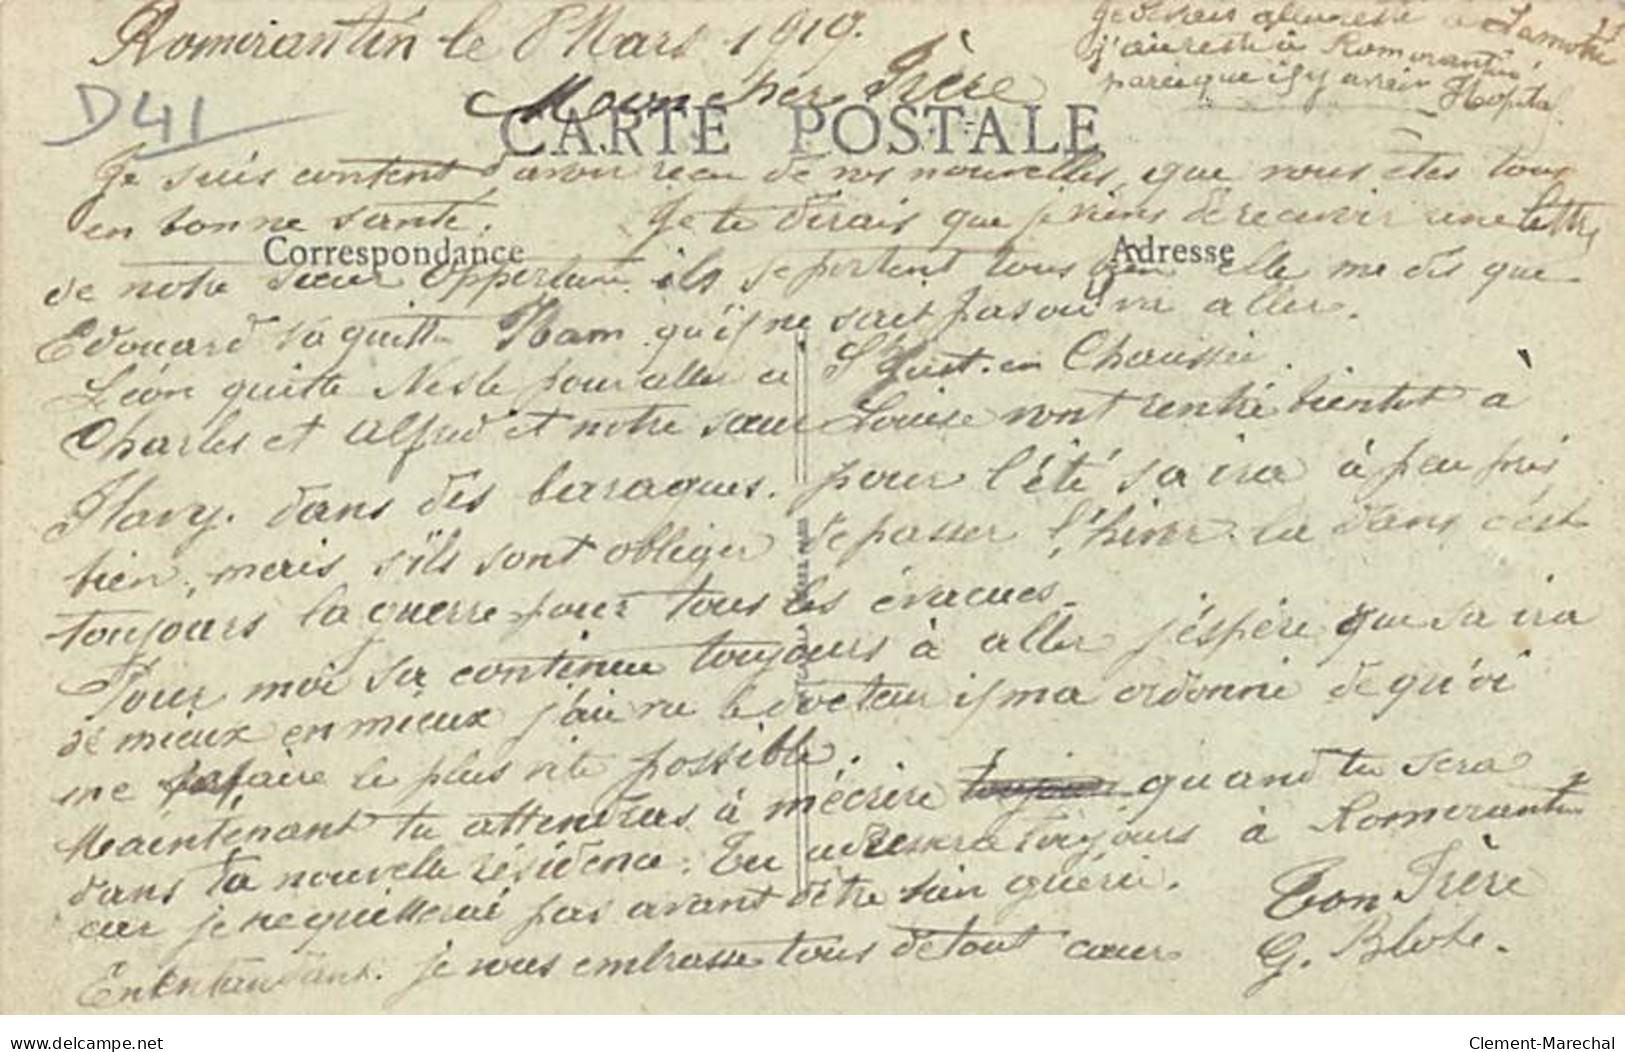 Romorantin le 8 Mars 1919.
à Lamotte
j'ai resté à Romorantin
parce que il y avait Hopital
Mon cher Frère
D41
CARTE POSTALE
Je suis content d'avoir recu de vos nouvelles, que vous êtes tous
en bonne santé. Je te dirais que je viens de recevoir une lettre
Correspondance
Adresse
de notre sœur ils se portent tous bien elle me dis que
Edouard quitte Ham qu'il ne sait pas ou va aller.
Léon quitte Nesle pour aller a St Just-en Chaussée.
Charles et Alfred et notre sœur Louise vont rentré bientot à
Flavy. dans des baraques. pour l'été sa ira à peu pres
bien, mais s'ils sont obliger de passer l'hiver la dans c'est
toujours la guerre pour tous les évacues.
Pour moi sa continue toujours à aller j'éspère que sa ira
de mieux en mieux j'ai vu le docteur il ma ordonné de qu'oi
me faire le plus vite possible.
Maintenant tu attendras à m'écrire quand tu sera
dans ta nouvelle résidence. Tu adressera toujours à Romorantin
car je ne quitterai pas avant d'être bien guéri.
En entendant. je vous embrasse tous de tout cœur
Ton Frère
G.
delcampe.net
Clement-Marechal